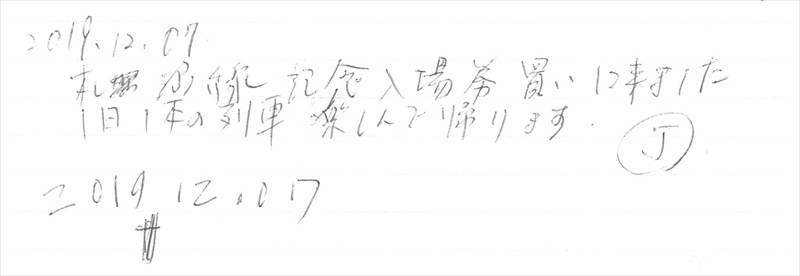 2019.12.07
札沼線 記念入場券 買いに来ました
1日1本の列車 楽しんで帰ります.
J
2019 12.07